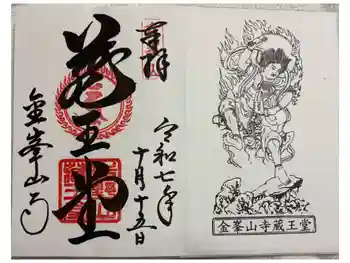 奉拝
蔵王堂
金峯山寺
令和七年
十月十五日
金峯山寺蔵王堂